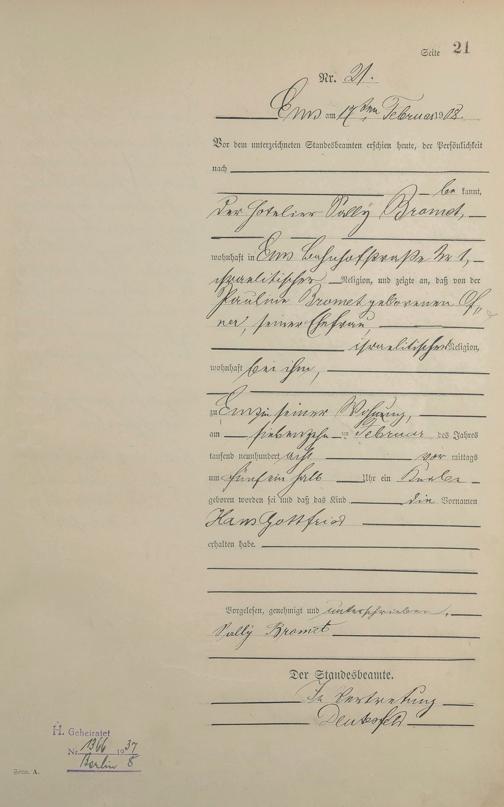 Seite 21
Nr. 21.
Ems am 17ten Februar 1908.
Vor dem unterzeichneten Standesbeamten erschien heute, der Persönlichkeit
nach
be kannt,
der Hotelier Sally Bromet,
wohnhaft in Ems Bahnhofstraße Nr 1,
israelitischer Religion, und zeigte an, daß von der
Pauline Bromet geborenen
ner, seiner Ehefrau,
israelitischer Religion,
wohnhaft bei ihm,
zu Ems in seiner Wohnung,
am siebenzehn ten Februar des Jahres
tausend neunhundert acht vor mittags
um fünf ein halb Uhr ein Knabe
geboren worden sei und daß das Kind die Vornamen
Hans Gottfried
erhalten habe.
Vorgelesen, genehmigt und unterschrieben.
Sally Bromet
Der Standesbeamte.
In Vertretung
H. Geheiratet
Nr. 1366 1937
Berlin 8
Form. A.